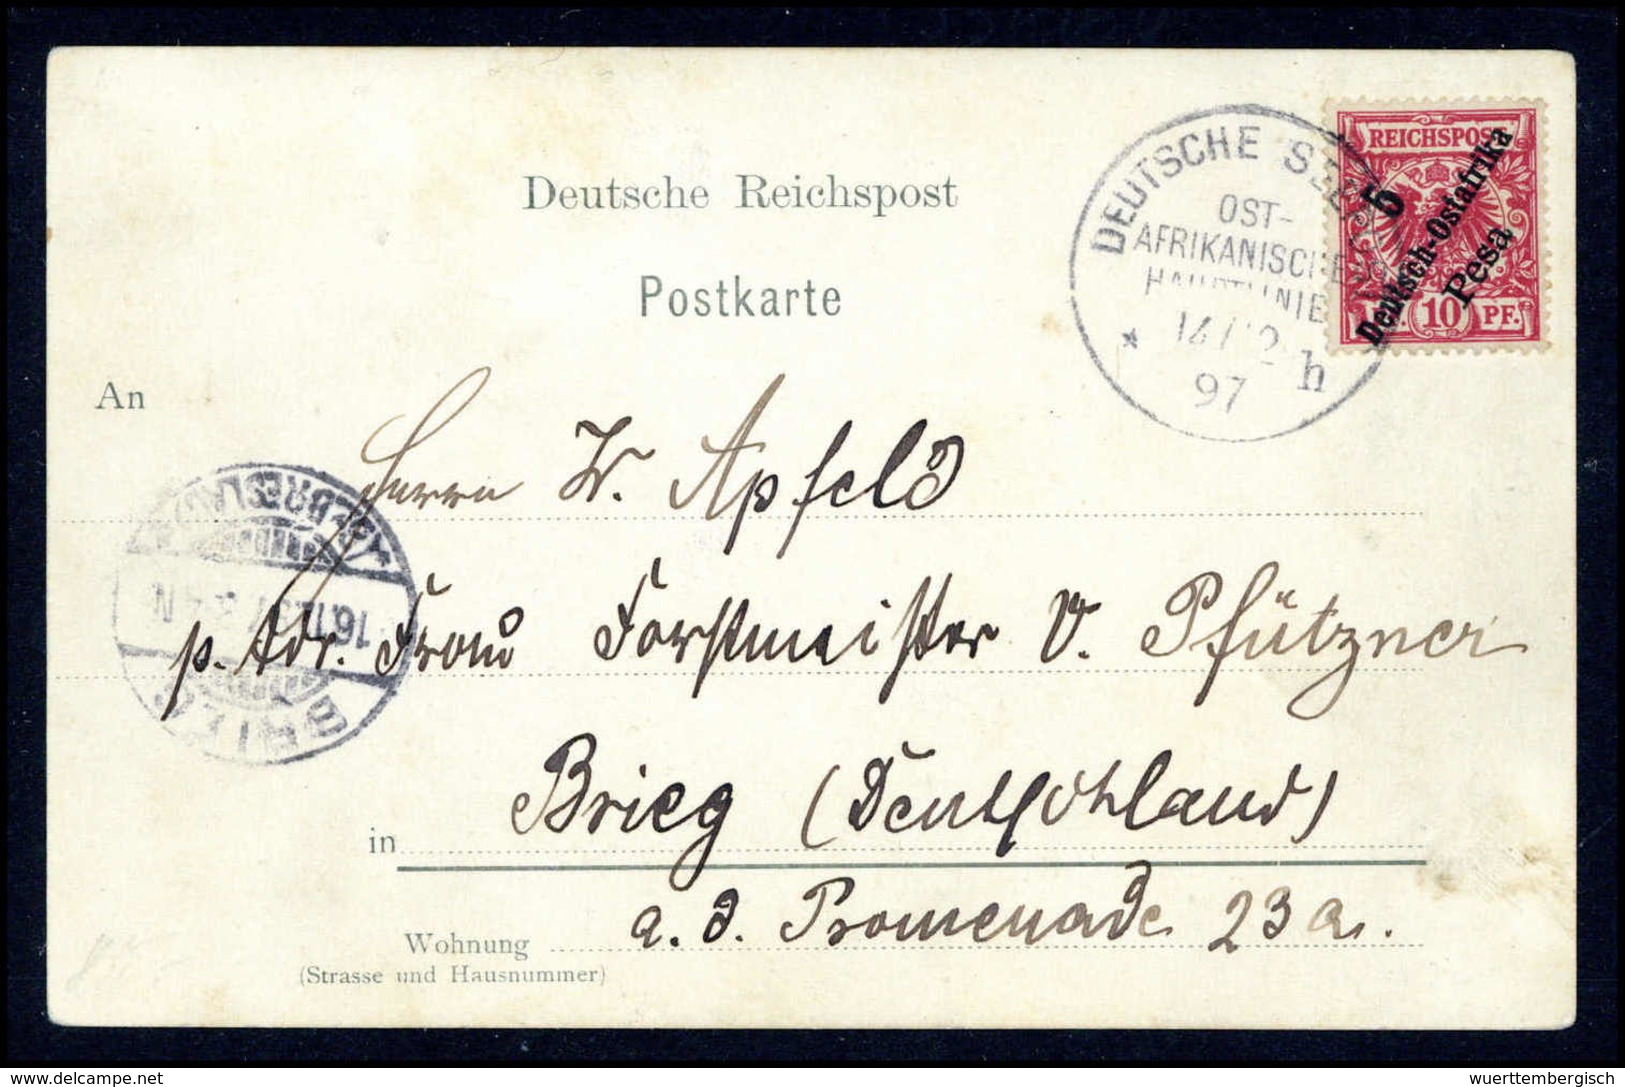 Deutsche Reichspost
Postkarte
DEUTSCHE SEEPOST
OST-
AFRIKANISCHE
HAUPTLINIE
97
h
REICHSPOST
5
Deutsch-Ostafrika
Pesa
10 PF.
An
Herrn W. Apfeld
p. Adr. Frau Forstmeister v. Pfützner
Brieg (Deutschland)
in
a. d. Promenade 23 a.
Wohnung
(Strasse und Hausnummer)
BRIEG
BRESLAU
wuerttembergisch